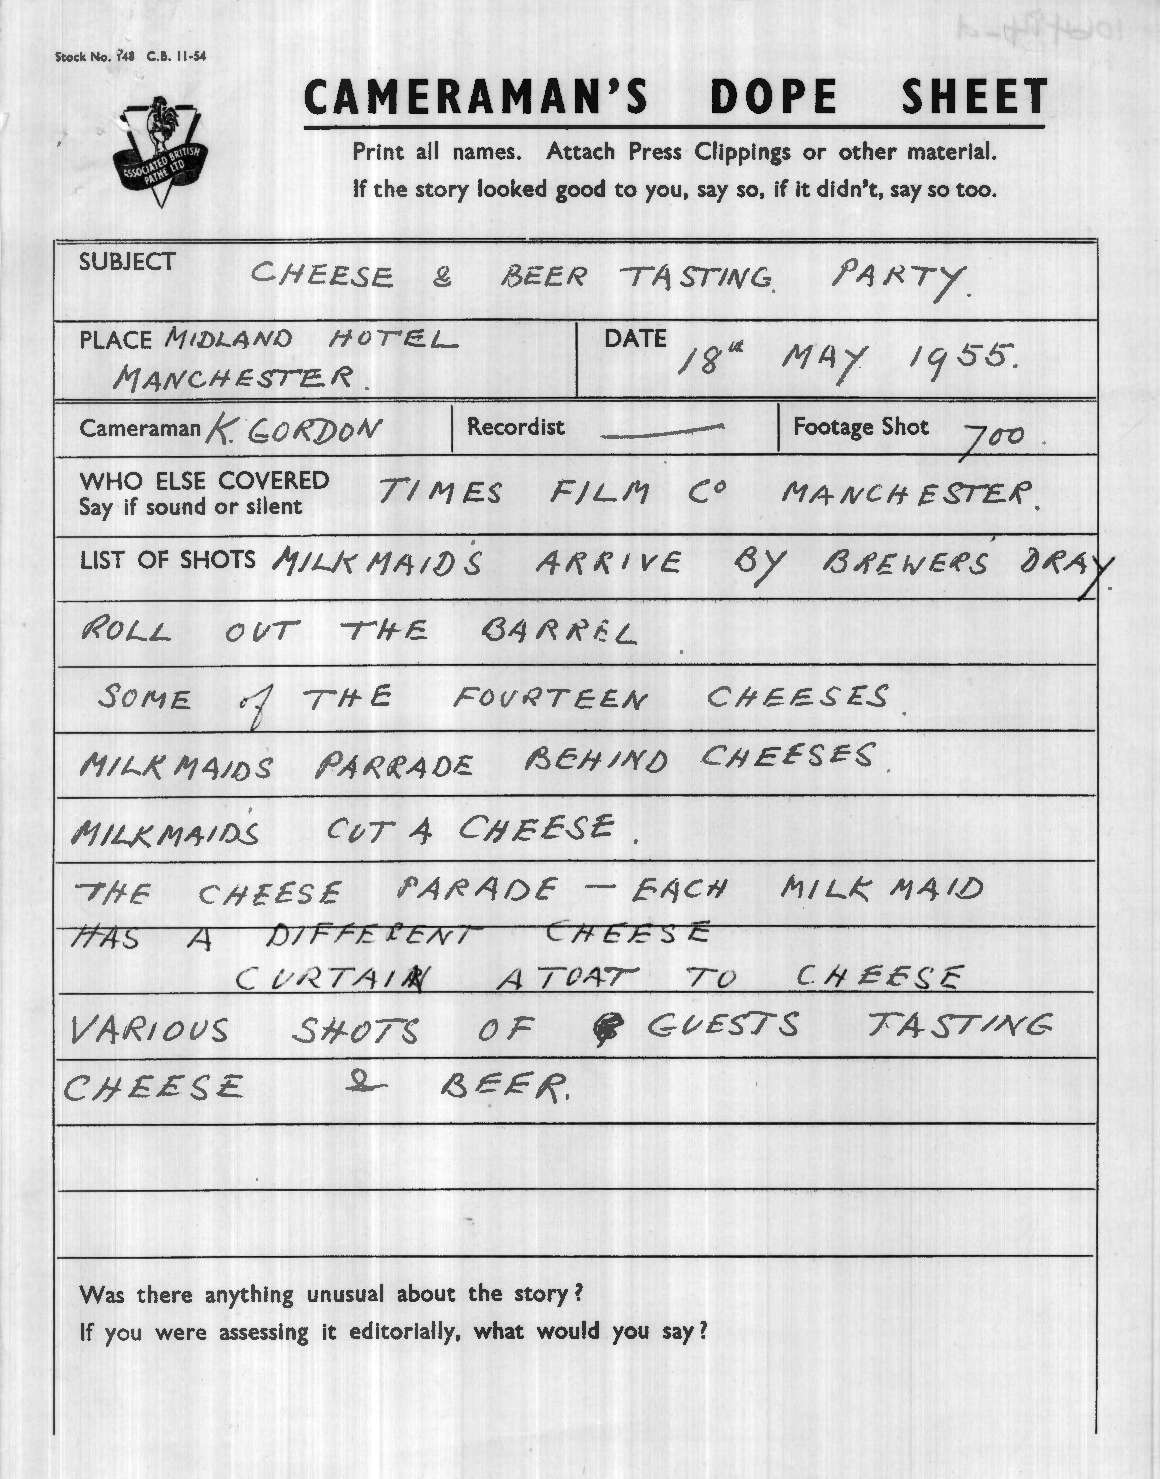 Stock No. 748 C.B. 11-54
CAMERAMAN'S DOPE SHEET
ASSOCIATED BRITISH
PATHE LTD
Print all names. Attach Press Clippings or other material.
If the story looked good to you, say so, if it didn't, say so too.
SUBJECT CHEESE & BEER TASTING. PARTY.
PLACE MIDLAND HOTEL
MANCHESTER.
DATE 18th MAY 1955.
Cameraman K. GORDON
Recordist —
Footage Shot 700.
WHO ELSE COVERED
Say if sound or silent
TIMES FILM Co MANCHESTER.
LIST OF SHOTS MILKMAID'S ARRIVE BY BREWERS' DRAY.
ROLL OUT THE BARREL.
SOME of THE FOURTEEN CHEESES.
MILKMAIDS PARRADE BEHIND CHEESES.
MILKMAID'S CUT A CHEESE.
THE CHEESE PARADE — EACH MILKMAID
HAS A DIFFERENT CHEESE
CURTAIN A TOAT TO CHEESE
VARIOUS SHOTS OF GUESTS TASTING
CHEESE & BEER.
Was there anything unusual about the story?
If you were assessing it editorially, what would you say?